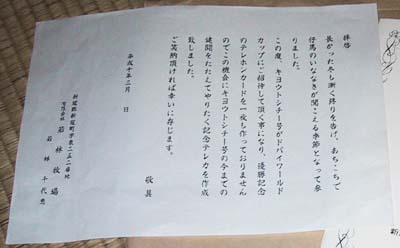 拝啓
長かった冬も漸く終りを告げ、あちこちで
仔馬のいななきが聞こえる季節となって参
りました。
この度、キヨウトシチー号がドバイワールド
カップにご招待して頂く事になり、優勝記念
のテレホンカードを一枚も作っておりません
のでこの機会にキヨウトシチー号の今までの
健闘をたたえてやりたく記念テレカを作成
致しました。
ご笑納頂ければ幸いに存じます。
敬具
平成十年三月 日
新冠郡新冠町字
有限会社 若林牧場
若林千代恵